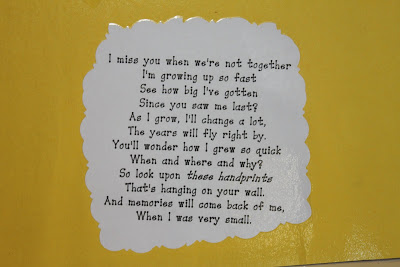 I miss you when we're not together
I'm growing up so fast
See how big I've gotten
Since you saw me last?
As I grow, I'll change a lot,
The years will fly right by.
You'll wonder how I grew so quick
When and where and why?
So look upon these handprints
That's hanging on your wall.
And memories will come back of me,
When I was very small.